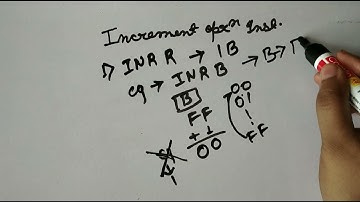 Increment opxⁿ Inst.
1) INR R → 1B
eg → INR B → B→
B
FF 00
+1 01
00 FF